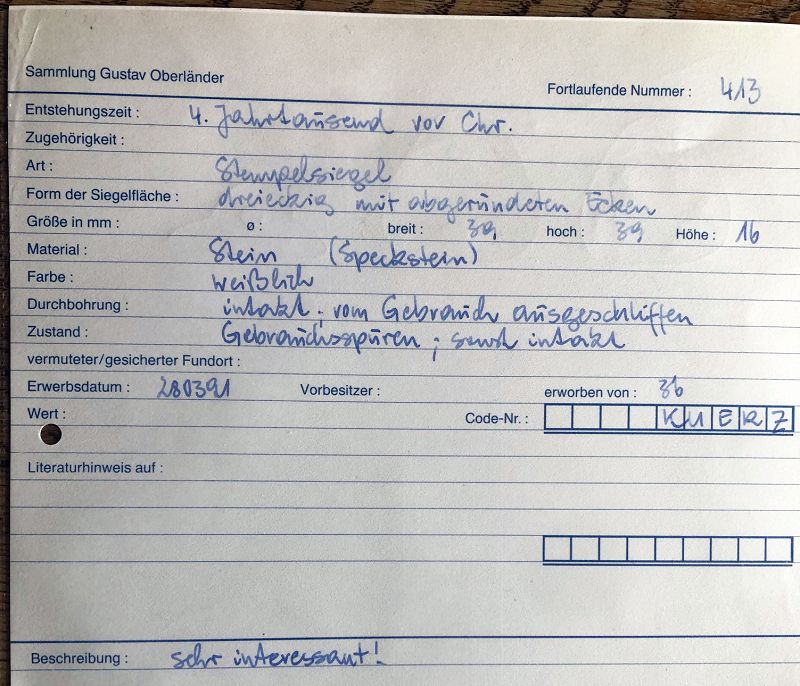 Sammlung Gustav Oberländer
Fortlaufende Nummer : 413
Entstehungszeit : 4. Jahrtausend vor Chr.
Zugehörigkeit :
Art : Stempelsiegel
Form der Siegelfläche : dreieckig mit abgerundeten Ecken
Größe in mm : ø : breit : 39 hoch : 39 Höhe : 16
Material : Stein (Speckstein)
Farbe : weißlich
Durchbohrung : intakt ; vom Gebrauch ausgeschliffen
Zustand : Gebrauchsspuren ; sonst intakt
vermuteter/gesicherter Fundort :
Erwerbsdatum : 280391 Vorbesitzer : erworben von : 36
Wert : Code-Nr. : KUERZ
Literaturhinweis auf :
Beschreibung : sehr interessant!